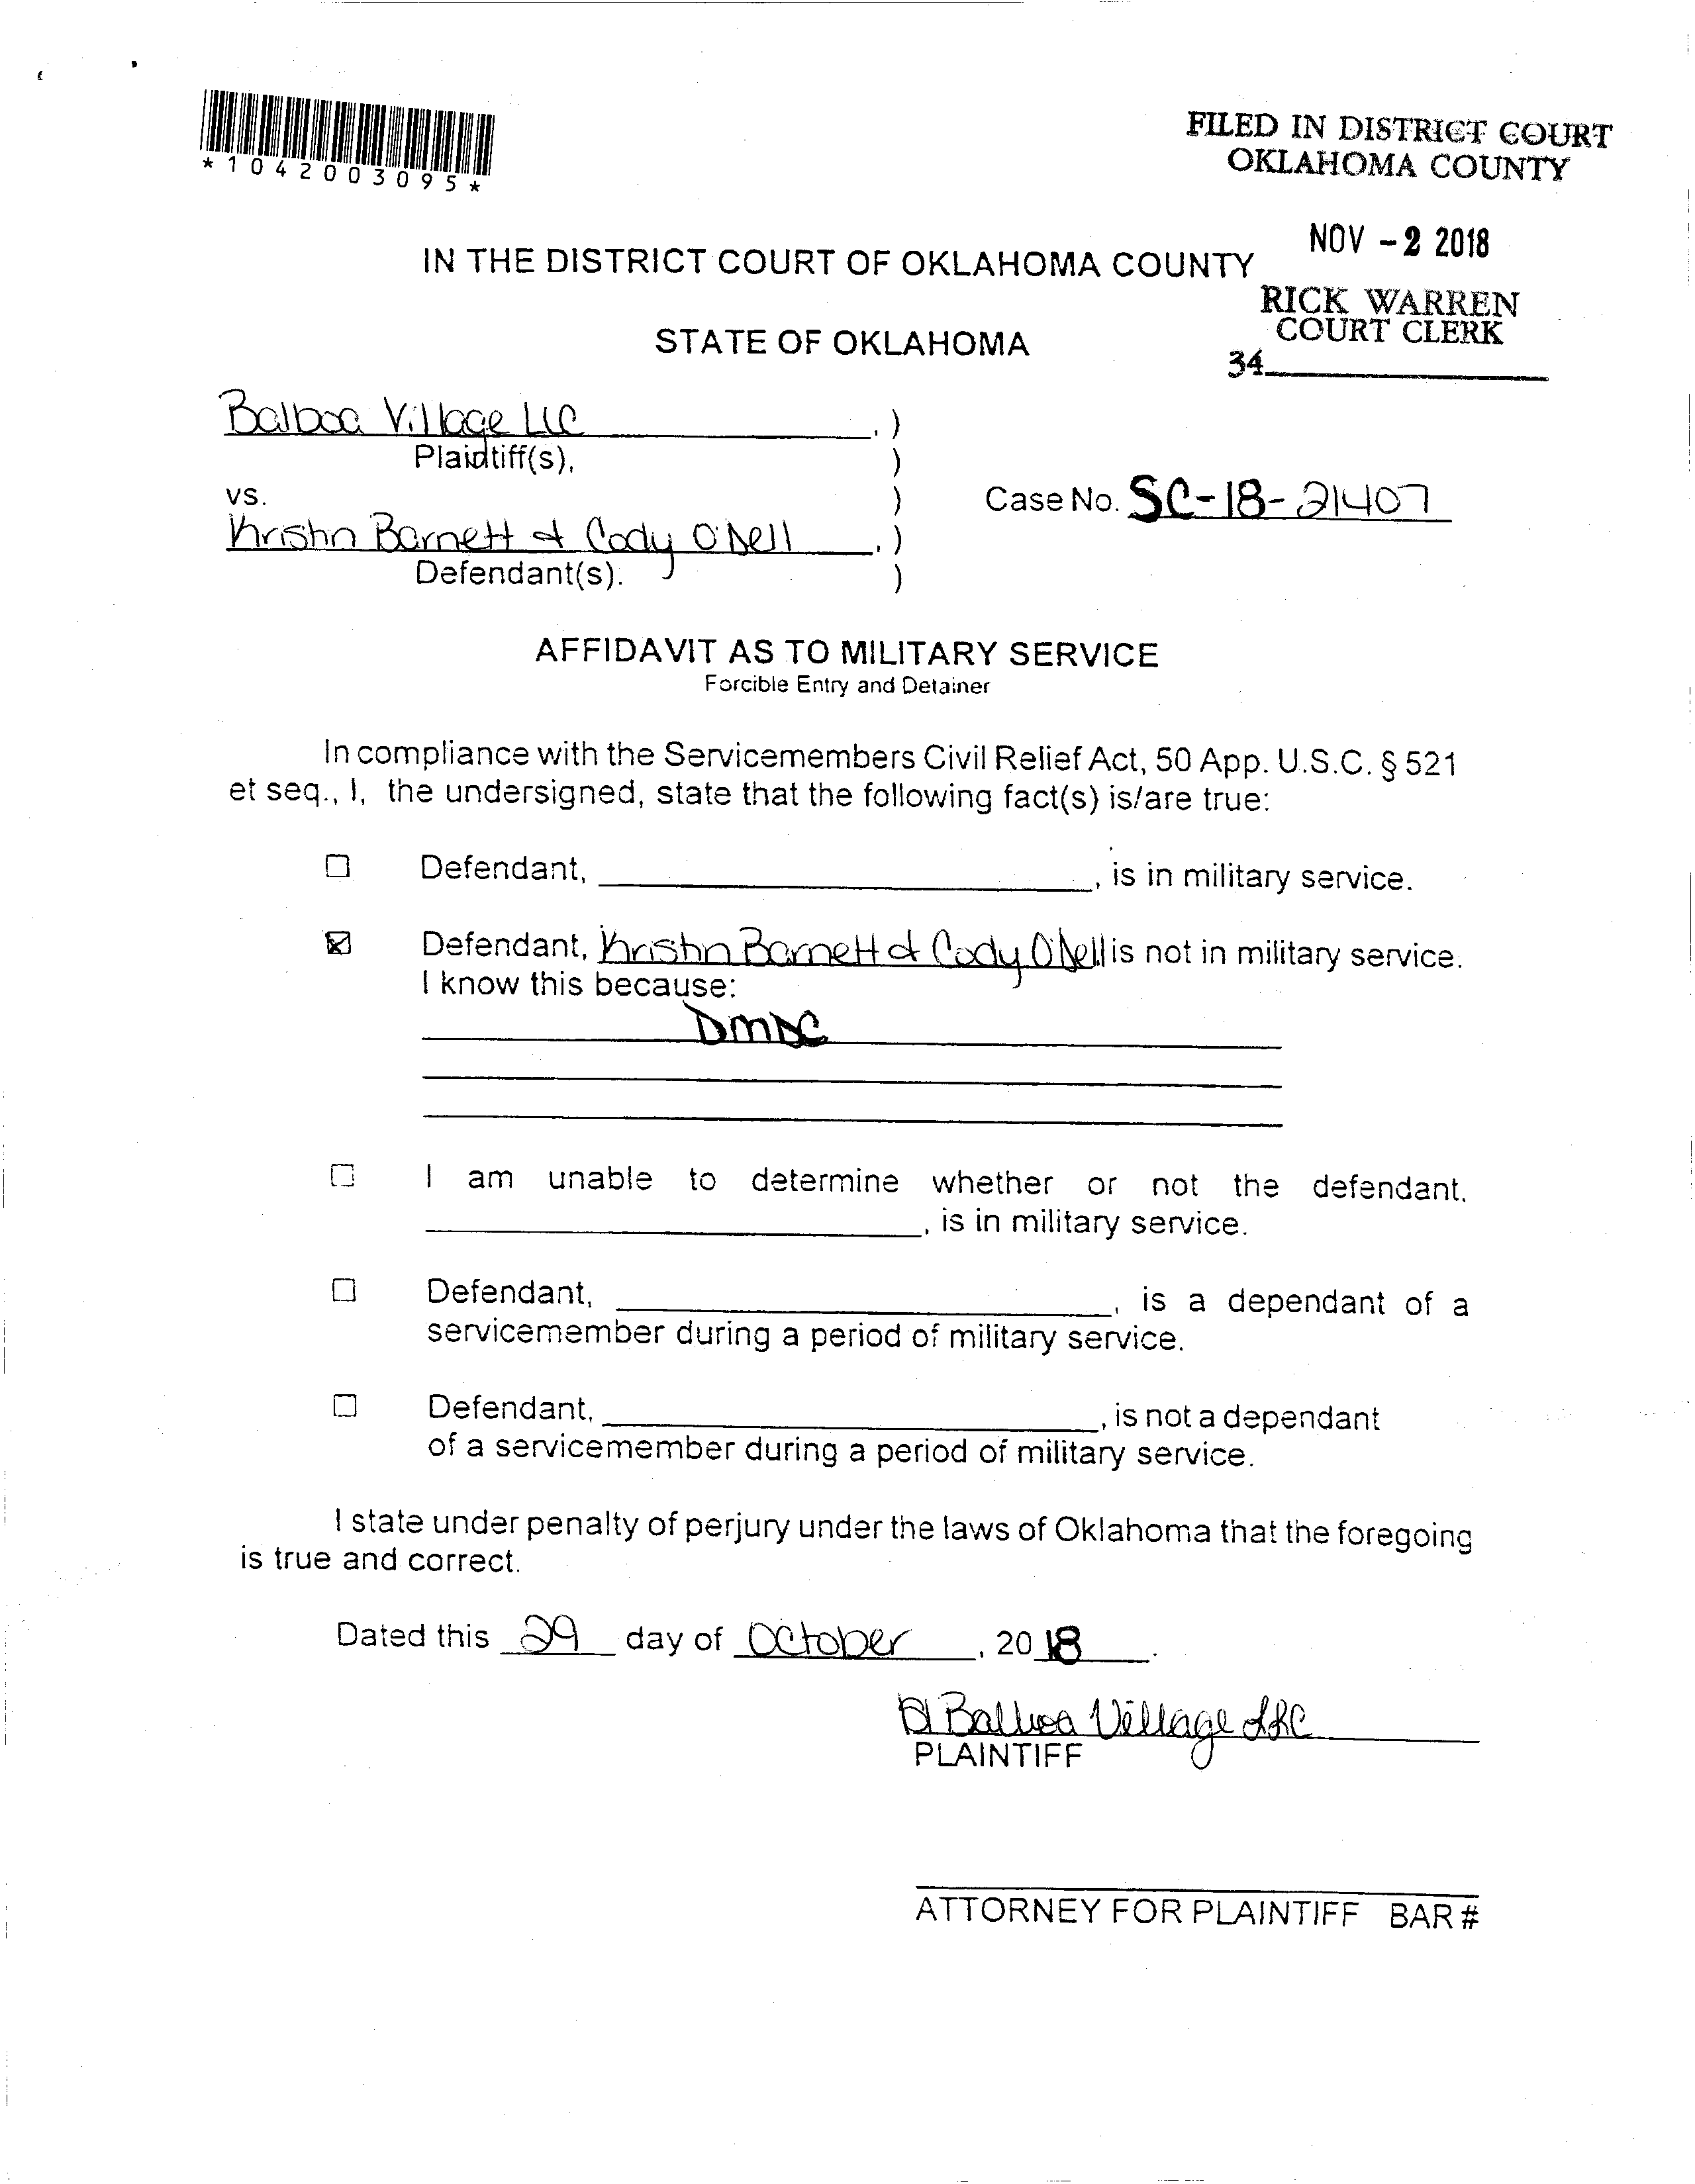 *1042003095*
FILED IN DISTRICT COURT
OKLAHOMA COUNTY
NOV - 2 2018
RICK WARREN
COURT CLERK
34
IN THE DISTRICT COURT OF OKLAHOMA COUNTY
STATE OF OKLAHOMA
Balboa Village LLC , )
Plaintiff(s), )
vs. )
Case No. SC-18-21407
Kristin Barnett & Cody O'Dell , )
Defendant(s). )
AFFIDAVIT AS TO MILITARY SERVICE
Forcible Entry and Detainer
In compliance with the Servicemembers Civil Relief Act, 50 App. U.S.C. § 521
et seq., I, the undersigned, state that the following fact(s) is/are true:
☐ Defendant, , is in military service.
☒ Defendant, Kristin Barnett & Cody O'Dell is not in military service.
I know this because:
DMDC
☐ I am unable to determine whether or not the defendant,
, is in military service.
☐ Defendant, , is a dependant of a
servicemember during a period of military service.
☐ Defendant, , is not a dependant
of a servicemember during a period of military service.
I state under penalty of perjury under the laws of Oklahoma that the foregoing
is true and correct.
Dated this 29 day of October , 2018 .
Balboa Village LLC
PLAINTIFF
ATTORNEY FOR PLAINTIFF BAR #